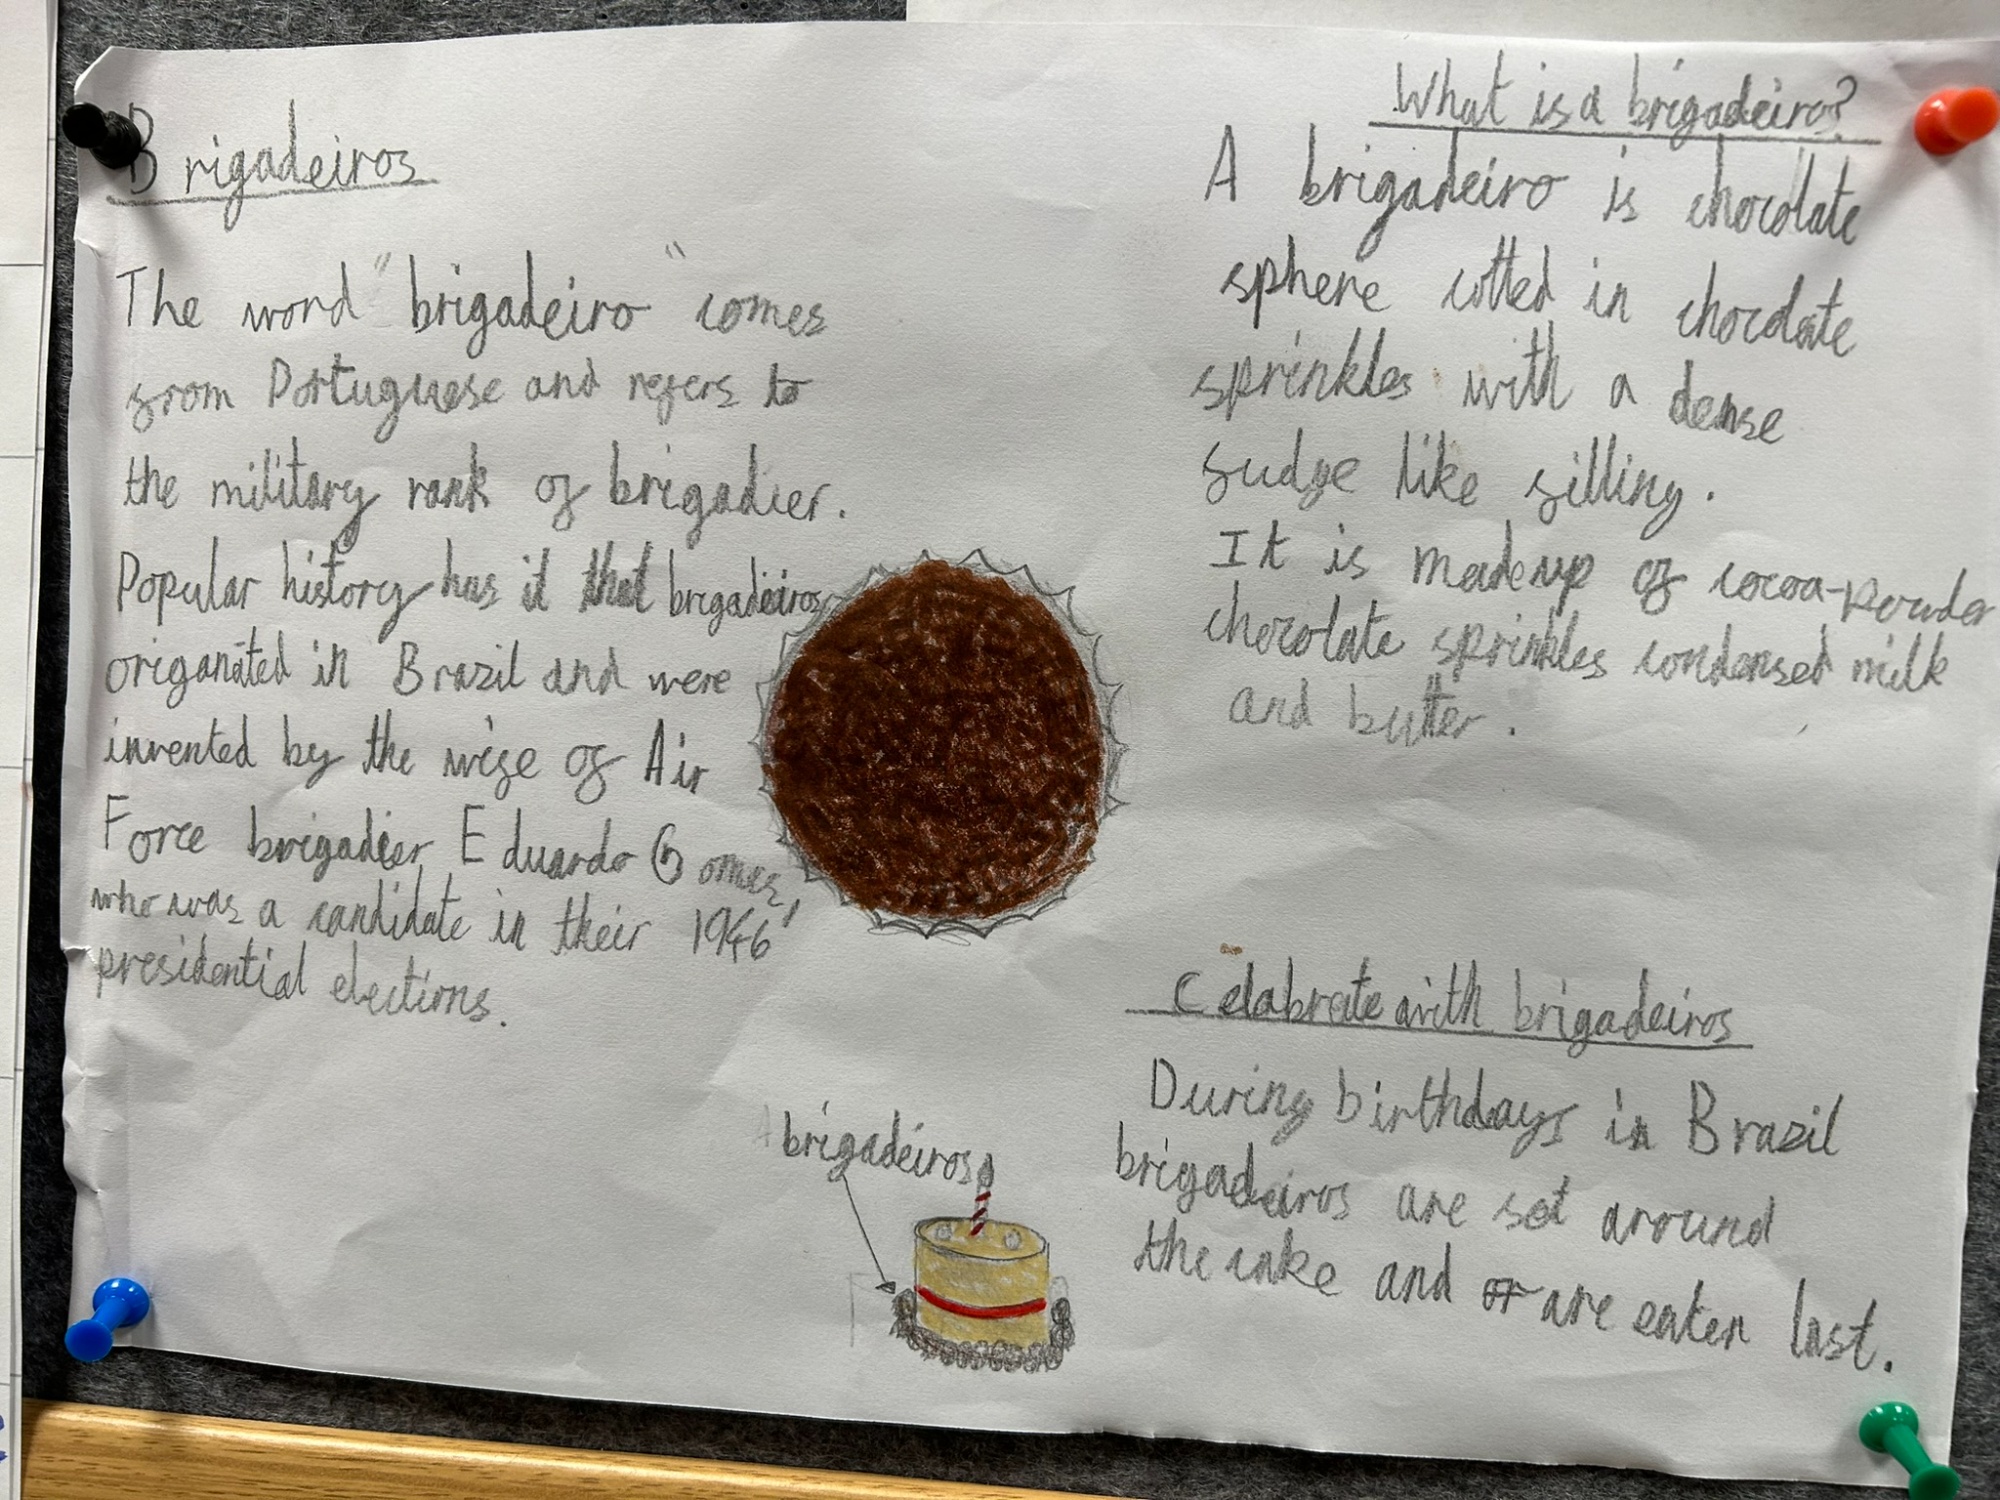 Brigadeiros
The word "brigadeiro" comes
from Portuguese and refers to
the military rank of brigadier.
Popular history has it that brigadeiros
origanated in Brazil and were
invented by the wife of Air
Force brigadier Eduardo Gomes,
who was a candidate in their 1946
presidential elections.
What is a brigadeiros?
A brigadeiro is chocolate
sphere cotted in chocolate
sprinkles with a dense
fudge like filling.
It is made up of cocoa-powder
chocolate sprinkles condensed milk
and butter.
brigadeiros
Celabrate with brigadeiros
During birthdays in Brazil
brigadeiros are set around
the cake and or are eaten last.